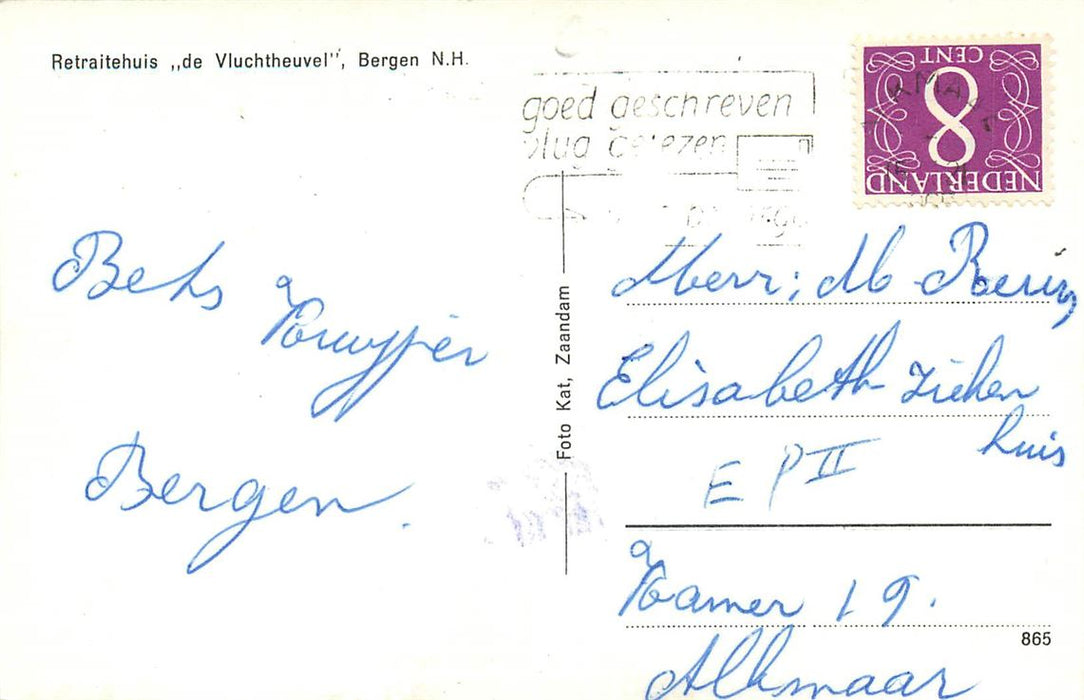 Retraitehuis „de Vluchtheuvel”, Bergen N.H.
goed geschreven
vlug gelezen
8 CENT
NEDERLAND
Bets
Kruyjer
Bergen.
Foto Kat, Zaandam
Merr; M
Elisabeth Zieken
huis
E P II
Kamer 19.
Alkmaar
865